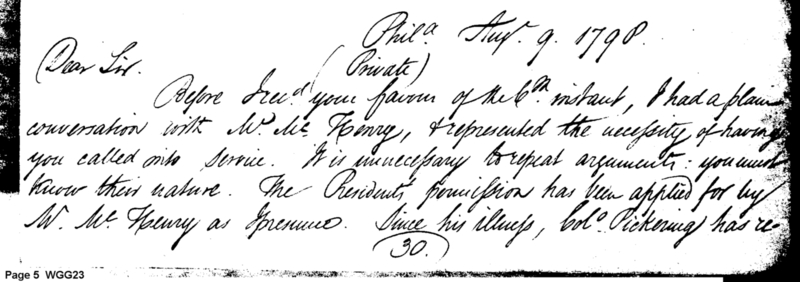 Phila. Augt. 9. 1798.
(Private)
Dear Sir.
Before I recd. your favour of the 6th. instant, I had a plain
conversation with Mr. Mc. Henry, & represented the necessity of having
you called into service. It is unnecessary to repeat arguments: you must
know their nature. The Presidents permission has been applied for by
Mr. Mc. Henry as I presume. Since his illness, Colo. Pickering has re-
30.
Page 5 WGG23